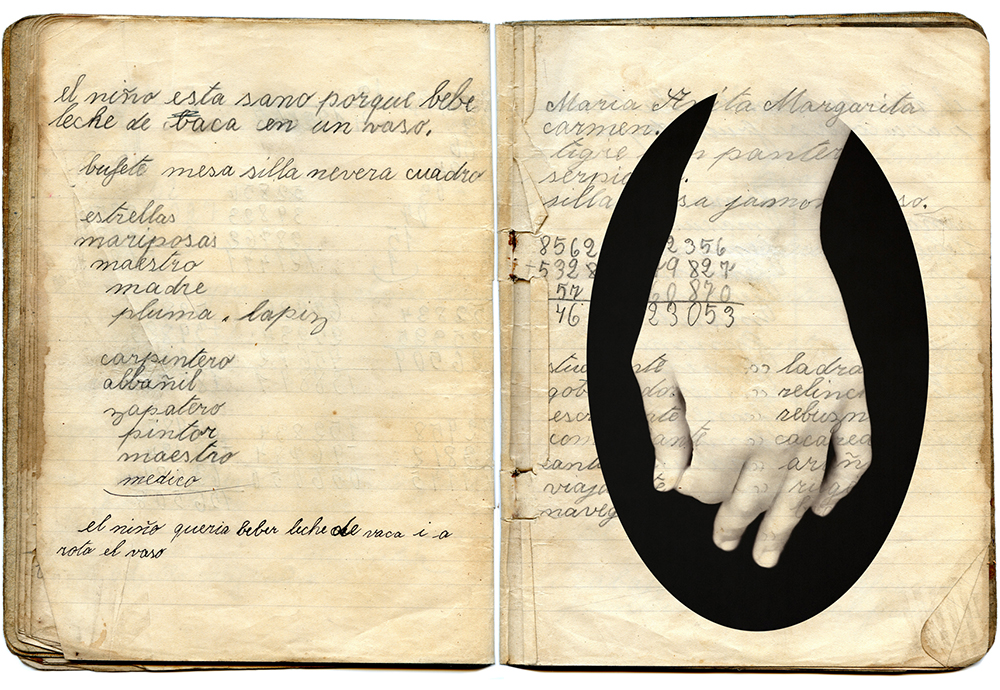 el niño esta sano porque bebe
leche de baca en un vaso.
bufete mesa silla nevera cuadro
estrellas
mariposas
maestro
madre
pluma. lapiz
carpintero
albañil
zapatero
pintor
maestro
medico
el niño queria beber leche de vaca i a
roto el vaso
Maria Anita Margarita
carmen.
tigre panter
serpi
silla sa jamon so.
8562 2356
+5328 9827
57 60870
46 23053
stu nte " ladra
gob do. " relinc
esc ante " rebuzn
com ante " cacarea
santi " arañ
viaja te " rug
naveg